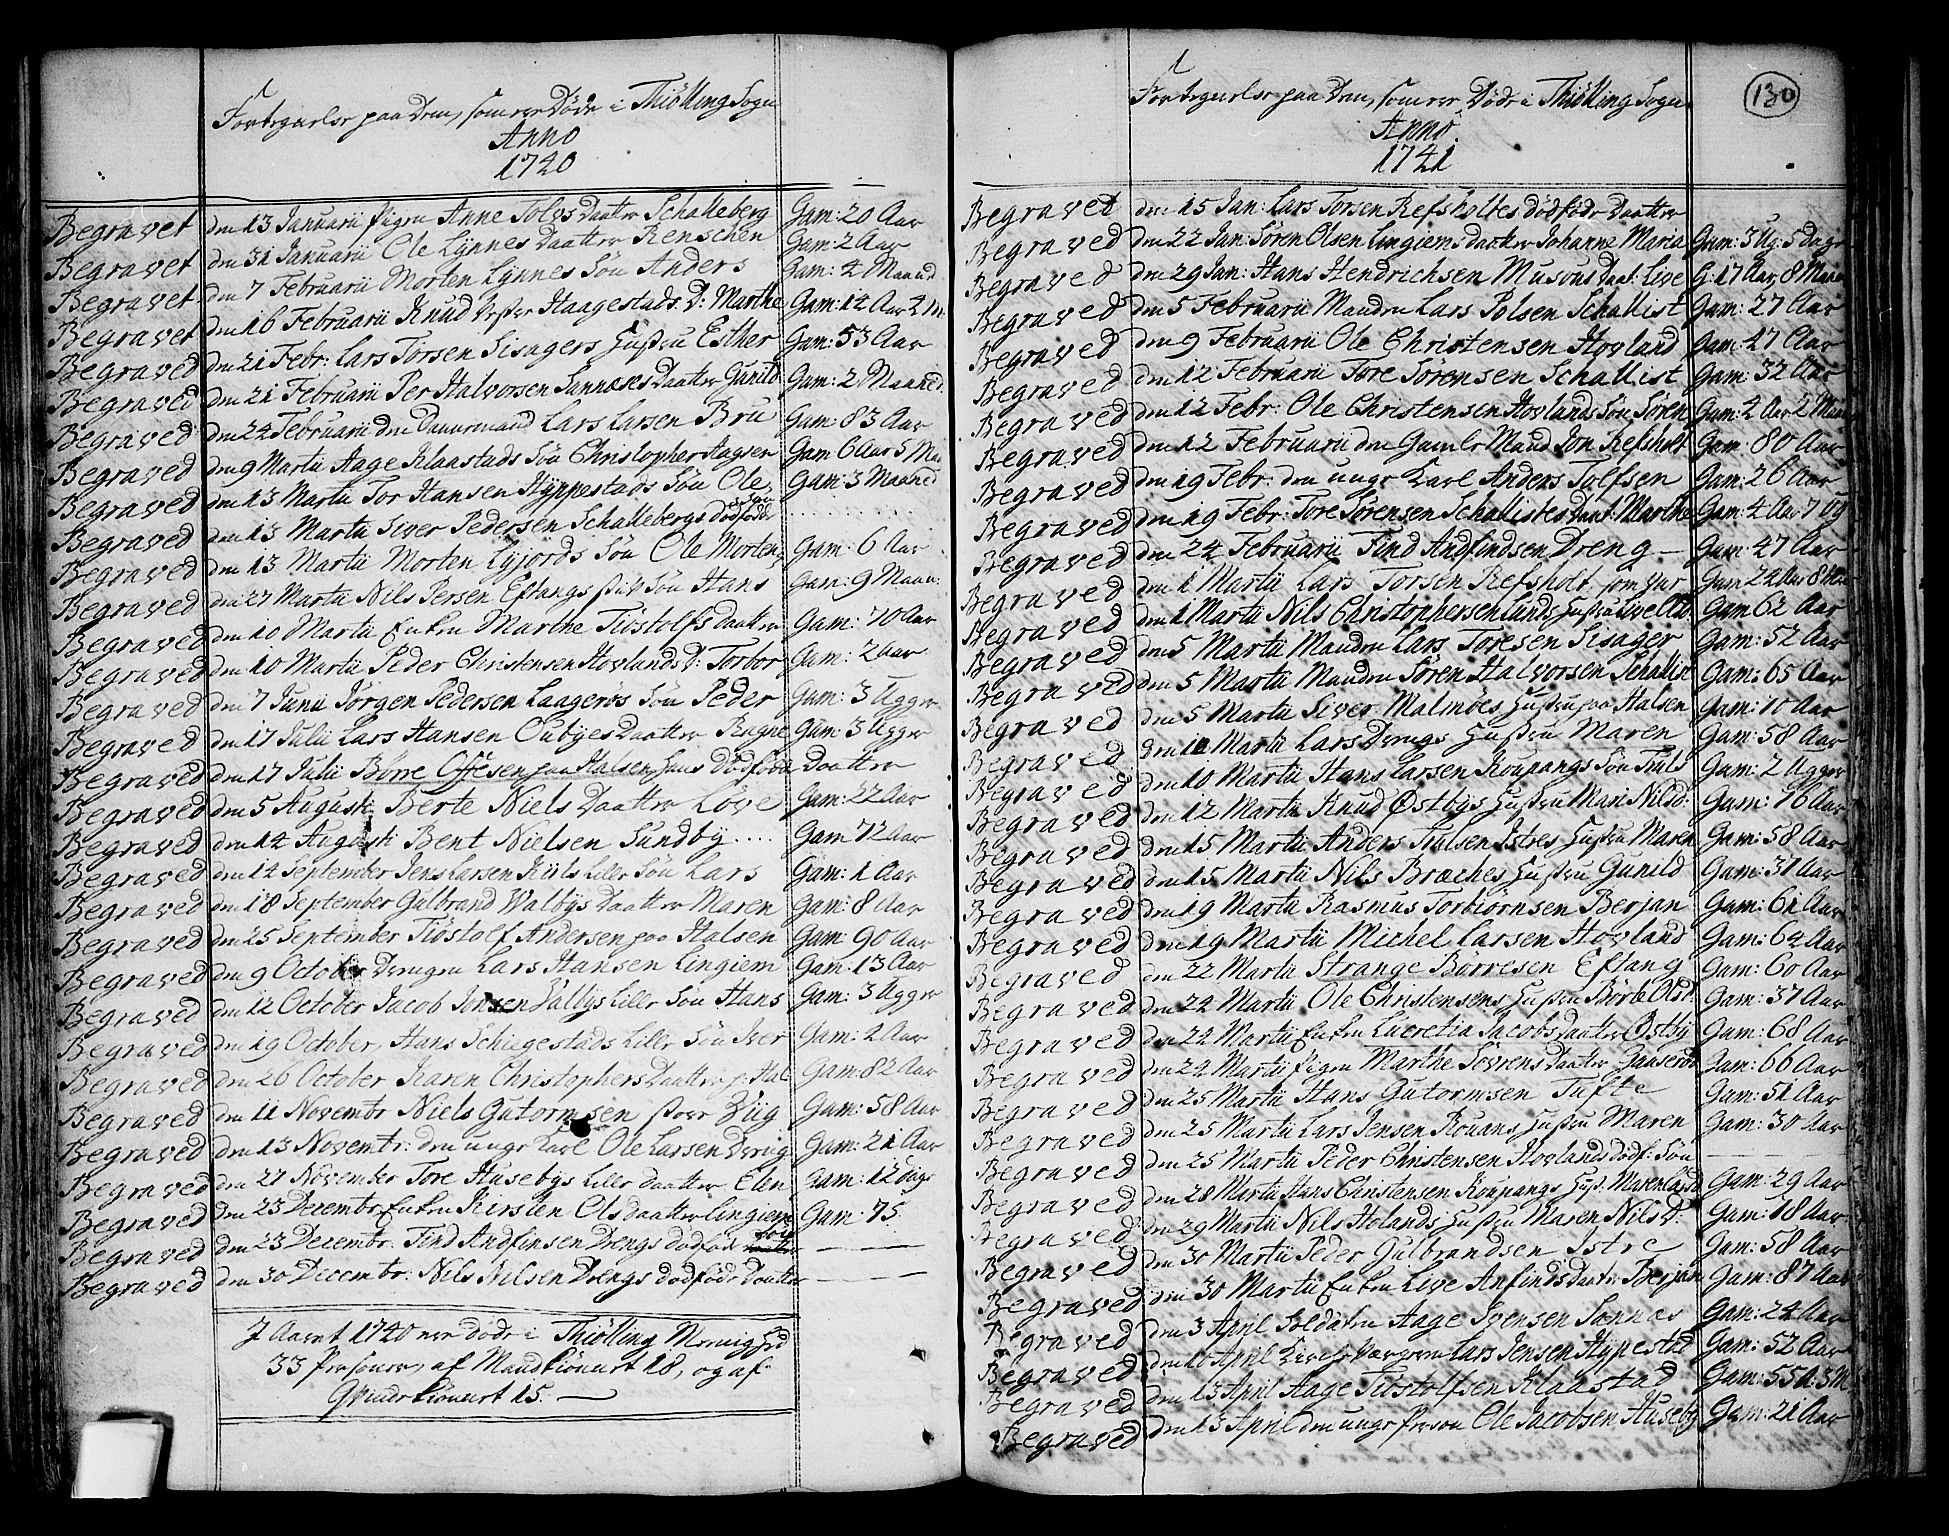 Fortegnelse paa Dem, som ere Døde i Thiølling Sogn
Anno
1740
Begravet den 13 Januarii Pigen Anne Tolvs Daatter Schalleberg Gam: 20 Aar
Begravet den 31 Januarii Ole Lynnes Daatter Renschen Gam: 2 Aar
Begravet den 7 Februarii Morten Lynnes Søn Anders Gam: 4 Maaned
Begravet den 16 Februarii Knud Haagestads D: Marthe Gam: 12 Aar 2 M
Begraved den 21 Febr: Lars Torsen Sisagers Hustru Esther Gam: 53 Aar
Begraved den 21 Februarii Per Halvorsen Sannæses Daatter Gunild Gam: 2 Maaned
Begraved den 24 Februarii den Dannemand Lars Larsen Bru Gam: 83 Aar
Begraved den 9 Martii Aage Klaastads Søn Christopher Aagsen Gam 6 Aar 5 M
Begraved den 13 Martii Tor Hansen Hyppestads Søn Ole Gam: 3 Maaned
Begraved den 13 Martii Siver Pedersen Schallebergs dødfødde Søn
Begraved den 13 Martii Morten Lyjords Søn Ole Morten, Gam: 6 Aar
Begraved den 27 Martii Nils Persen Eftangs Søn Hans Gam: 9 Maan:
Begraved den 10 Martii Enken Marthe Tiøstolfs Daatter Gam: 70 Aar
Begraved den 10 Martii Peder Christensen Hovlands D: Torbor Gam: 2 Aar
Begraved den 7 Junii Jørgen Pedersen Laagerøs Søn Peder Gam: 3 Ugger
Begraved den 17 Julii Lars Hansen Oubyes Daatter Ragne Gam: 3 Ugger
Begraved den 17 Julii Børre Offesen paa Halsen hans Dødfødde Daatter
Begraved den 5 Augusti Berte Niels Daatter Løve Gam: 22 Aar
Begraved den 14 Augusti Bent Nielsen Sundby.... Gam 72 Aar
Begraved den 14 September Jens Larsen Kiils Lille Søn Lars Gam: 1 Aar
Begraved den 18 September Gulbrand Walbys Daatter Maren Gam: 8 Aar
Begraved den 25 September Tiøstolf Andersen paa Halsen Gam: 90 Aar
Begraved den 9 October Drengen Lars Hansen Lingiem Gam: 13 Aar
Begraved den 12 October Jacob Jensen Valbys Lille Søn Hans Gam: 3 Ugger
Begraved den 19 October, Hans Schiegestads Lille Søn Iver Gam: 2 Aar
Begraved den 26 October Karen Christophers Daatter p: Hal Gam: 82 Aar
Begraved den 11 Novembr Niels Gutormsen store Viig Gam: 58 Aar
Begraved den 13 Novembr: den unge Karl Ole Larsen Dreng Gam: 21 Aar
Begraved den 27 November Tore Husebys Lille Daatter Elen Gam: 12 dage
Begraved den 23 Decembr Enken Kirsten Ols daatter Lingiem Gam: 75.
Begraved den 23 Decembr: Find Andfinsen Drengs dødfødde Søn
Begraved den 30 Decembr: Nils Nilsen Drengs Dødfødde Daatter
I Aaret 1740 ere døde i Thiølling Menighed
33 Personer, af Mandkiønnet 18, og af
Qvindekiønnet 15.
130
Fortegnelse paa Dem, som ere Døde i Thiølling Sogn
Anno
1741
Begravet den 15 Jan: Lars Torsen Refsholtes dødfødde Daatter
Begraved den 22 Jan: Søren Olsen Lingiems daatter Johanne Maria Gam: 3 Ug: 5 dage
Begraved den 29 Jan: Hans Hendrichsen Daat: Live G: 17 Aar 8 Maan
Begraved den 5 Februarii Manden Lars Polsen Schallist Gam: 27 Aar
Begraved den 9 Februarii Ole Christensen Hovland Gam: 47 Aar
Begraved den 12 Februarii Tore Sørensen Schallist Gam: 32 Aar
Begraved den 12 Febr: Ole Christensen Hovlands Søn Søren Gam: 4 Aar 2 Maan
Begraved den 12 Februarii den Gamle Mand Jon Refsholt Gam: 80 Aar
Begraved den 19 Febr: den unge Karl Anders Tolfsen Gam: 26 Aar
Begraved den 19 Febr: Tore Sørensen Schallistes Daat: Marthe Gam: 4 Aar 7 Ug
Begraved den 24 Februarii Find Andfindsen Dreng Gam: 47 Aar
Begraved den 1 Martii Lars Torsen Refsholt Gam 22 Aar 8 M
Begraved den 1 Martii Nils Christophersen Lunds Hustru Live Gam 62 Aar
Begraved den 5 Martii Manden Lars Toresen Sisager Gam: 52 Aar
Begraved den 5 Martii Manden Søren Halvorsen Schallist Gam: 65 Aar
Begraved den 5 Martii Siver Malmøes Hustru paa Halsen Gam: 70 Aar
Begraved den 10 Martii Lars Drengs Hustru Maren Gam: 58 Aar
Begraved den 10 Martii Hans Larsen Koupangs Søn Truls Gam: 2 Ugger
Begraved den 12 Martii Knud Østbys Hustru Mari Nilsd: Gam: 76 Aar
Begraved den 15 Martii Anders Istres Hustru Maren Gam: 58 Aar
Begraved den 15 Martii Nils Braches Hustru Gunild Gam: 37 Aar
Begraved den 19 Martii Rasmus Torbiornsen Berjan Gam: 61 Aar
Begraved den 19 Martii Michel Larsen Hovland Gam: 64 Aar
Begraved den 22 Martii Strange Børresen Eftang Gam: 60 Aar
Begraved den 24 Martii Ole Christensens Hustru Børte Olsd: Gam: 37 Aar
Begraved den 24 Martii Enken Lucretia Jacobs daatter Østby Gam: 68 Aar
Begraved den 24 Martii Pigen Marthe Sørens daatter Gaaserød Gam: 66 Aar
Begraved den 25 Martii Hans Gutormsen Tufte Gam: 51 Aar
Begraved den 25 Martii Lars Jensen Rouans Hustru Maren Gam: 30 Aar
Begraved den 25 Martii Peder Christensen Hovlands dødf: Søn
Begraved den 28 Martii Hans Christensen Koupangs Hust: Maren Gam: 29 Aar
Begraved den 29 Martii Nils Holands Hustru Maren Nilsd: Gam: 18 Aar
Begraved den 30 Martii Peder Gulbrandsen Istre Gam: 58 Aar
Begraved den 30 Martii Enken Live Anfinds Daatr: Berjan Gam: 87 Aar
Begraved den 3 April Soldaten Aage Svensen Sannæs Gam: 24 Aar
Begraved den 10 April Kircheværgeren Lars Jensen Hypestad Gam: 52 Aar
Begraved den 13 April Aage Tiøstolfsen Klaastad Gam: 55 A: 3 M
Begraved den 13 April den unge Person Ole Jacobsen Huseby Gam: 21 Aar